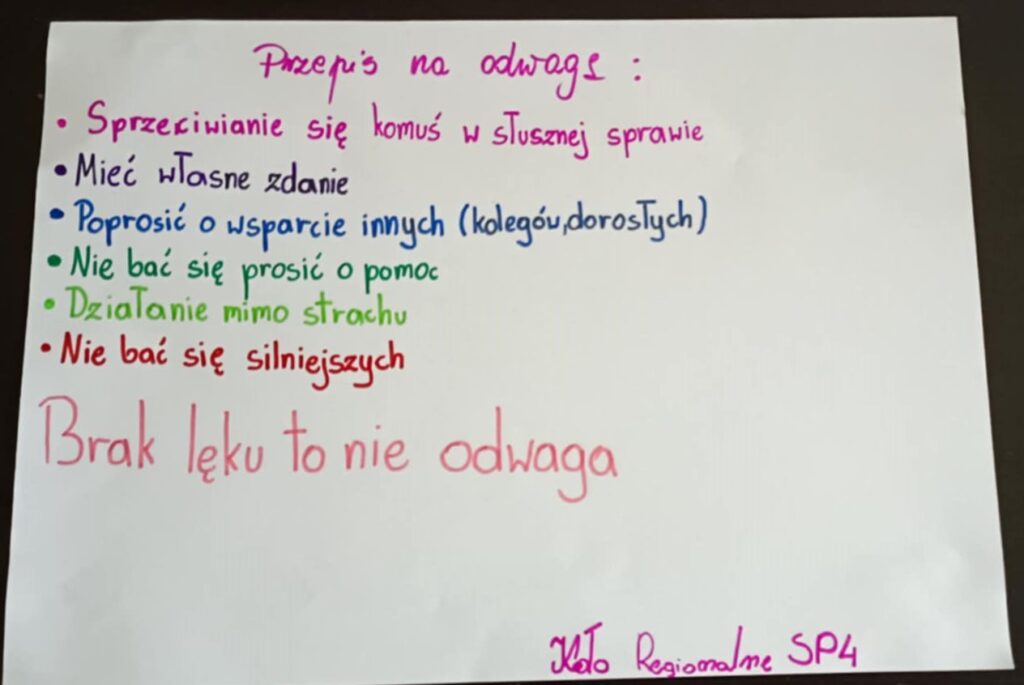 Przepis na odwagę :
• Sprzeciwianie się komuś w słusznej sprawie
• Mieć własne zdanie
• Poprosić o wsparcie innych (kolegów,dorosłych)
• Nie bać się prosić o pomoc
• Działanie mimo strachu
• Nie bać się silniejszych
Brak lęku to nie odwaga
Koło Regionalne SP4